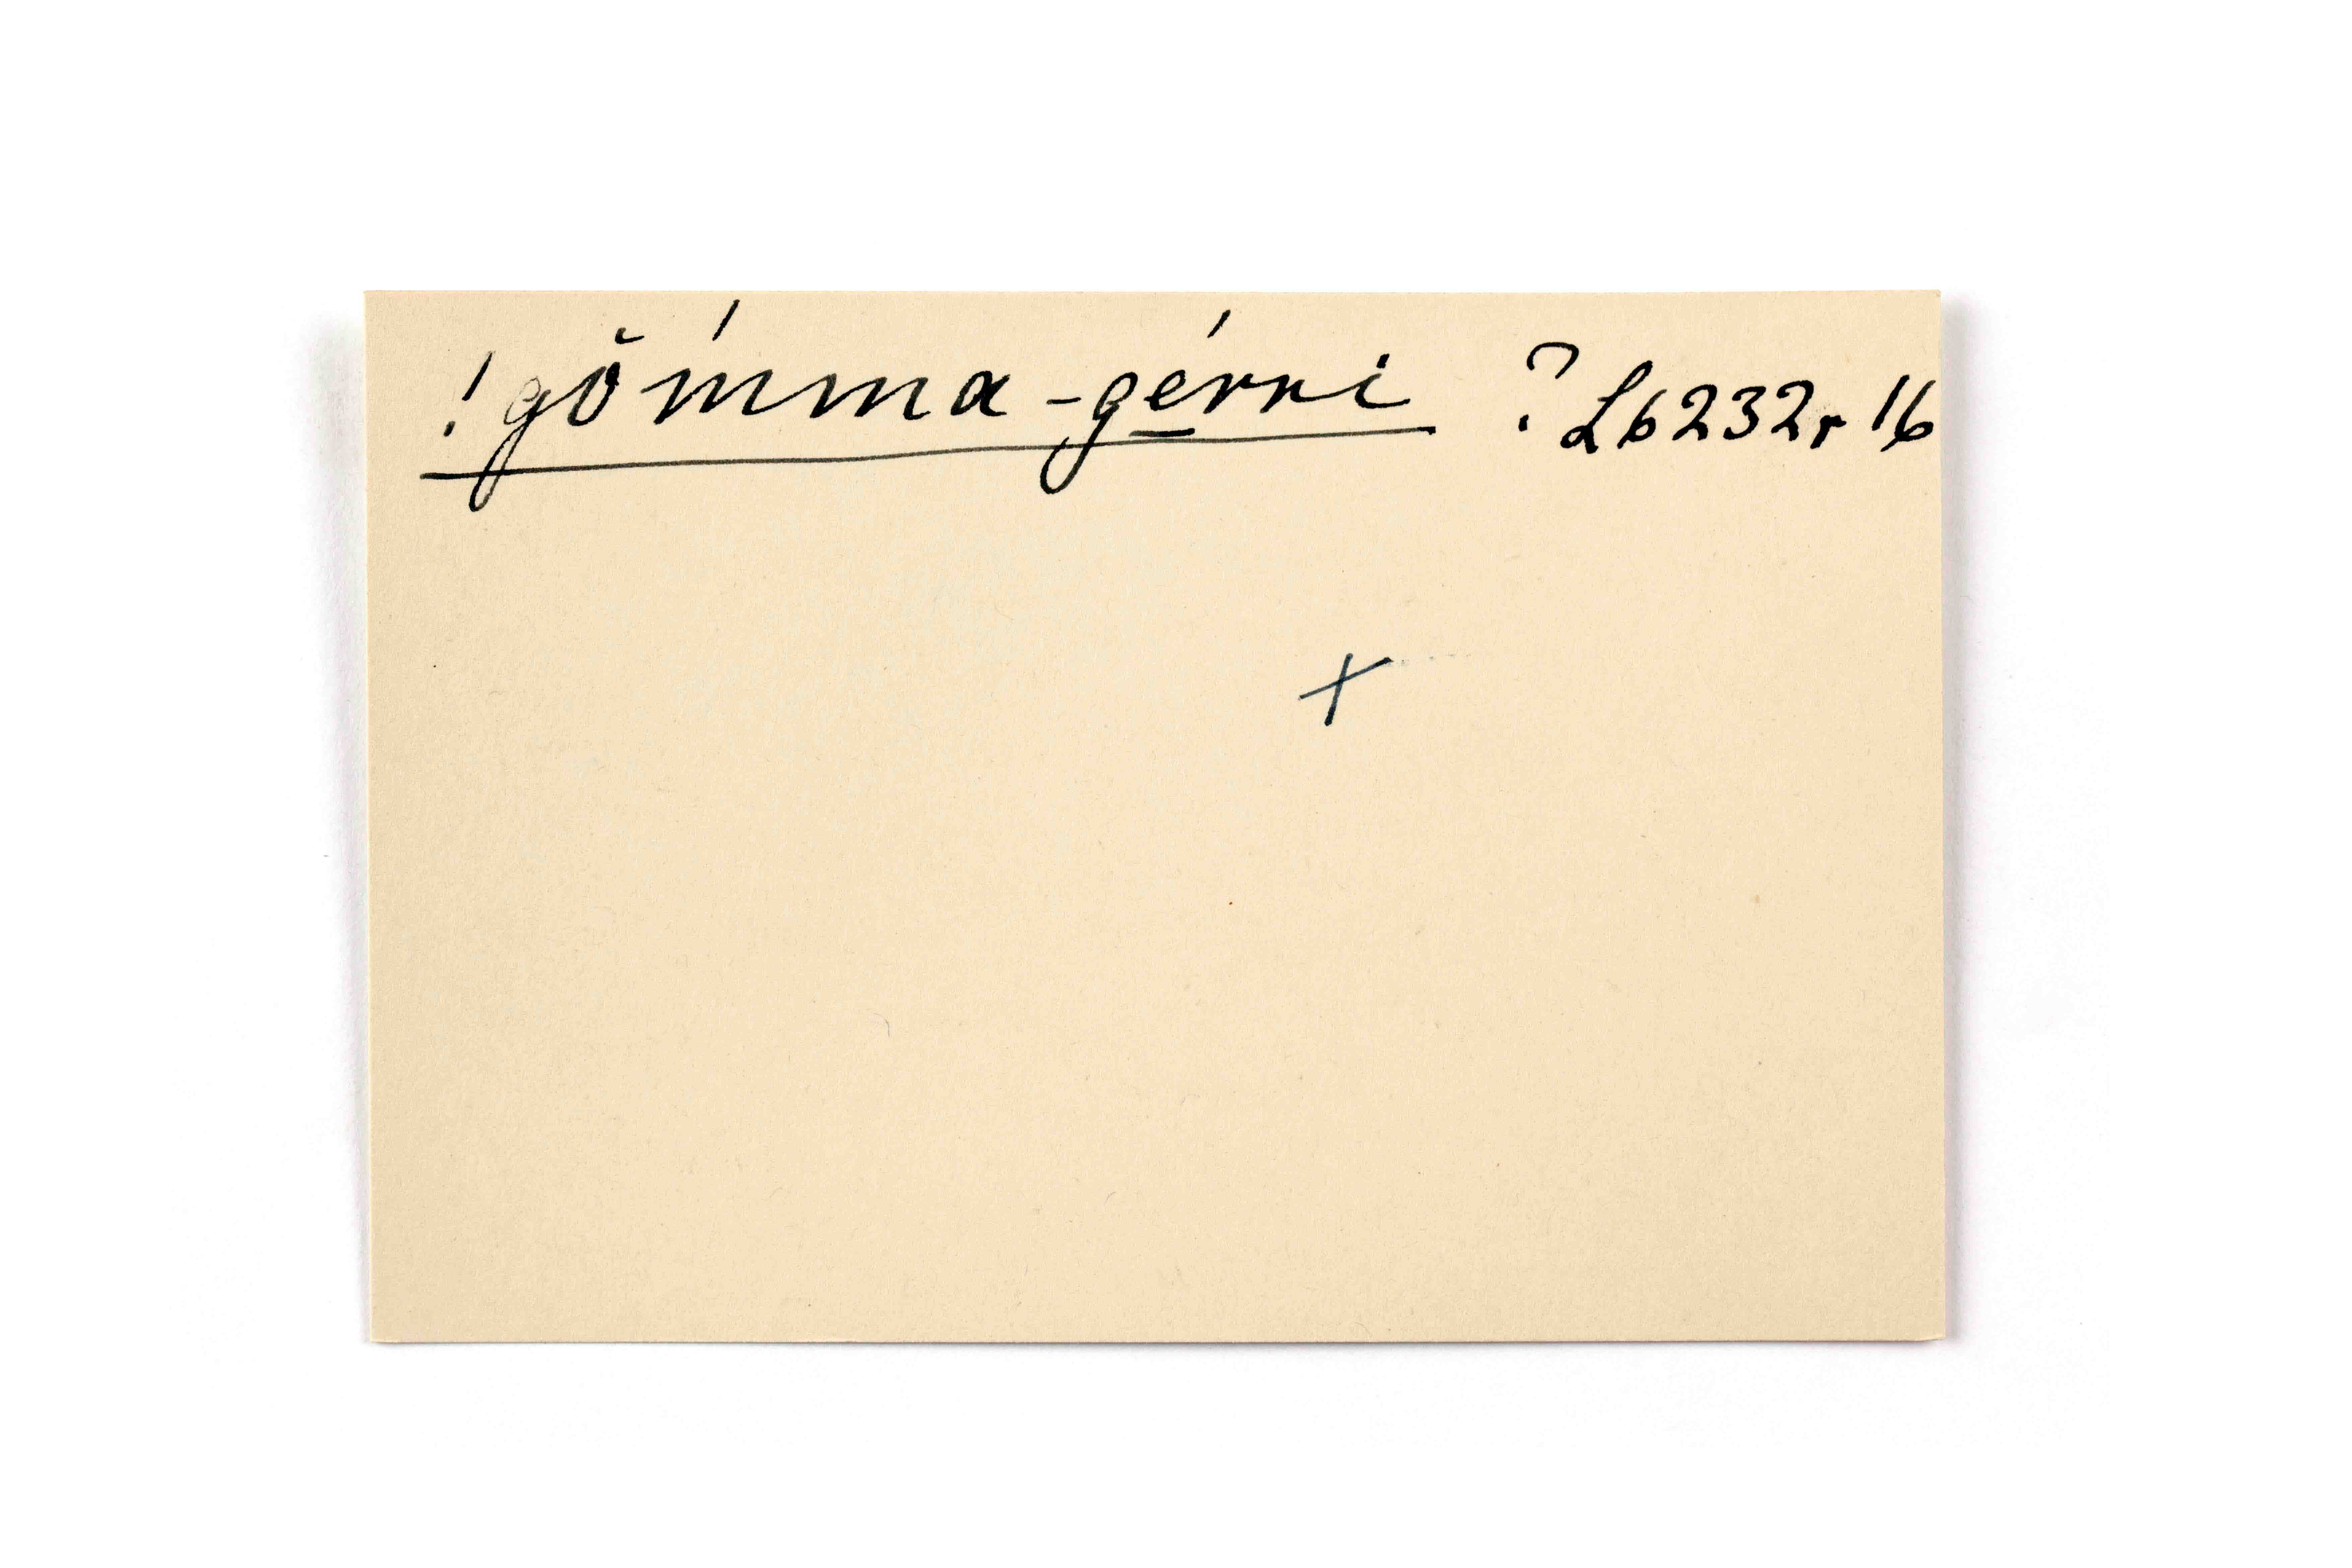 !gŏ́mma-gé̱rri ? L6232r 16
x